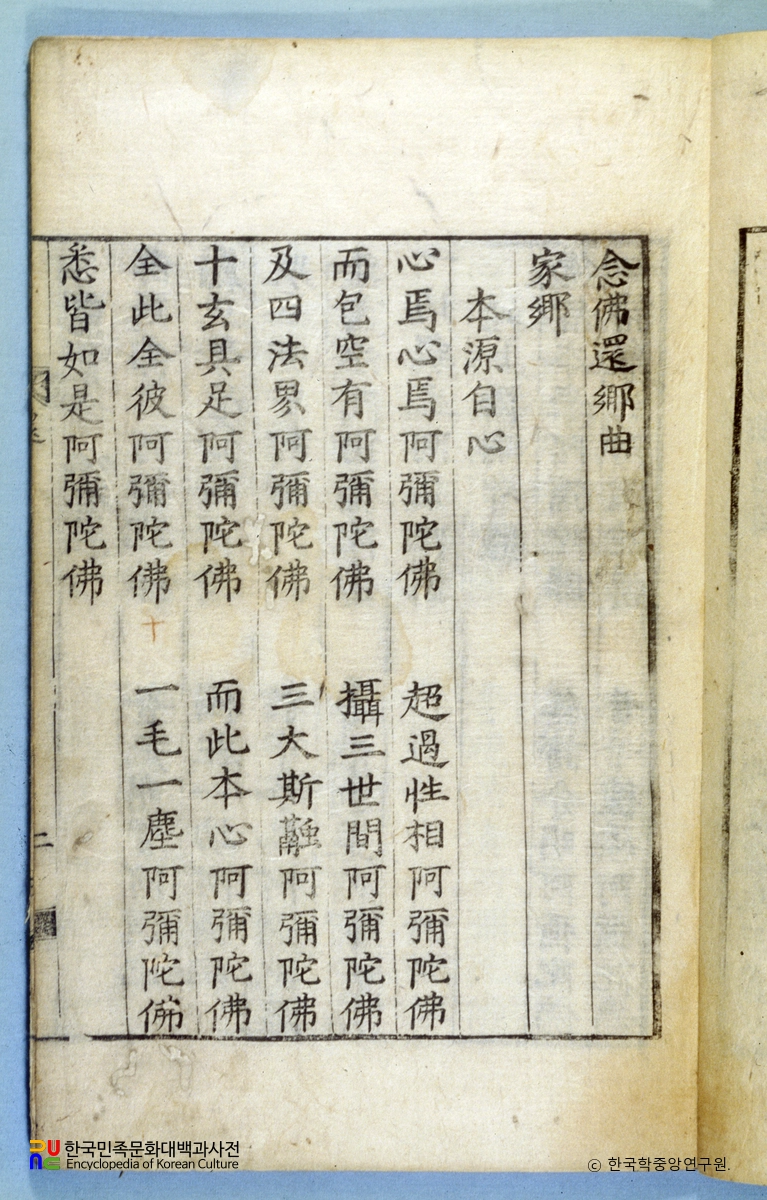 念佛還鄉曲
家鄉
本源自心
心焉心焉阿彌陀佛 超過性相阿彌陀佛
而包空有阿彌陀佛 攝三世間阿彌陀佛
及四法界阿彌陀佛 三大斯融阿彌陀佛
十玄具足阿彌陀佛 而此本心阿彌陀佛
全此全彼阿彌陀佛 一毛一塵阿彌陀佛
悉皆如是阿彌陀佛
二
한국민족문화대백과사전
Encyclopedia of Korean Culture
© 한국학중앙연구원.